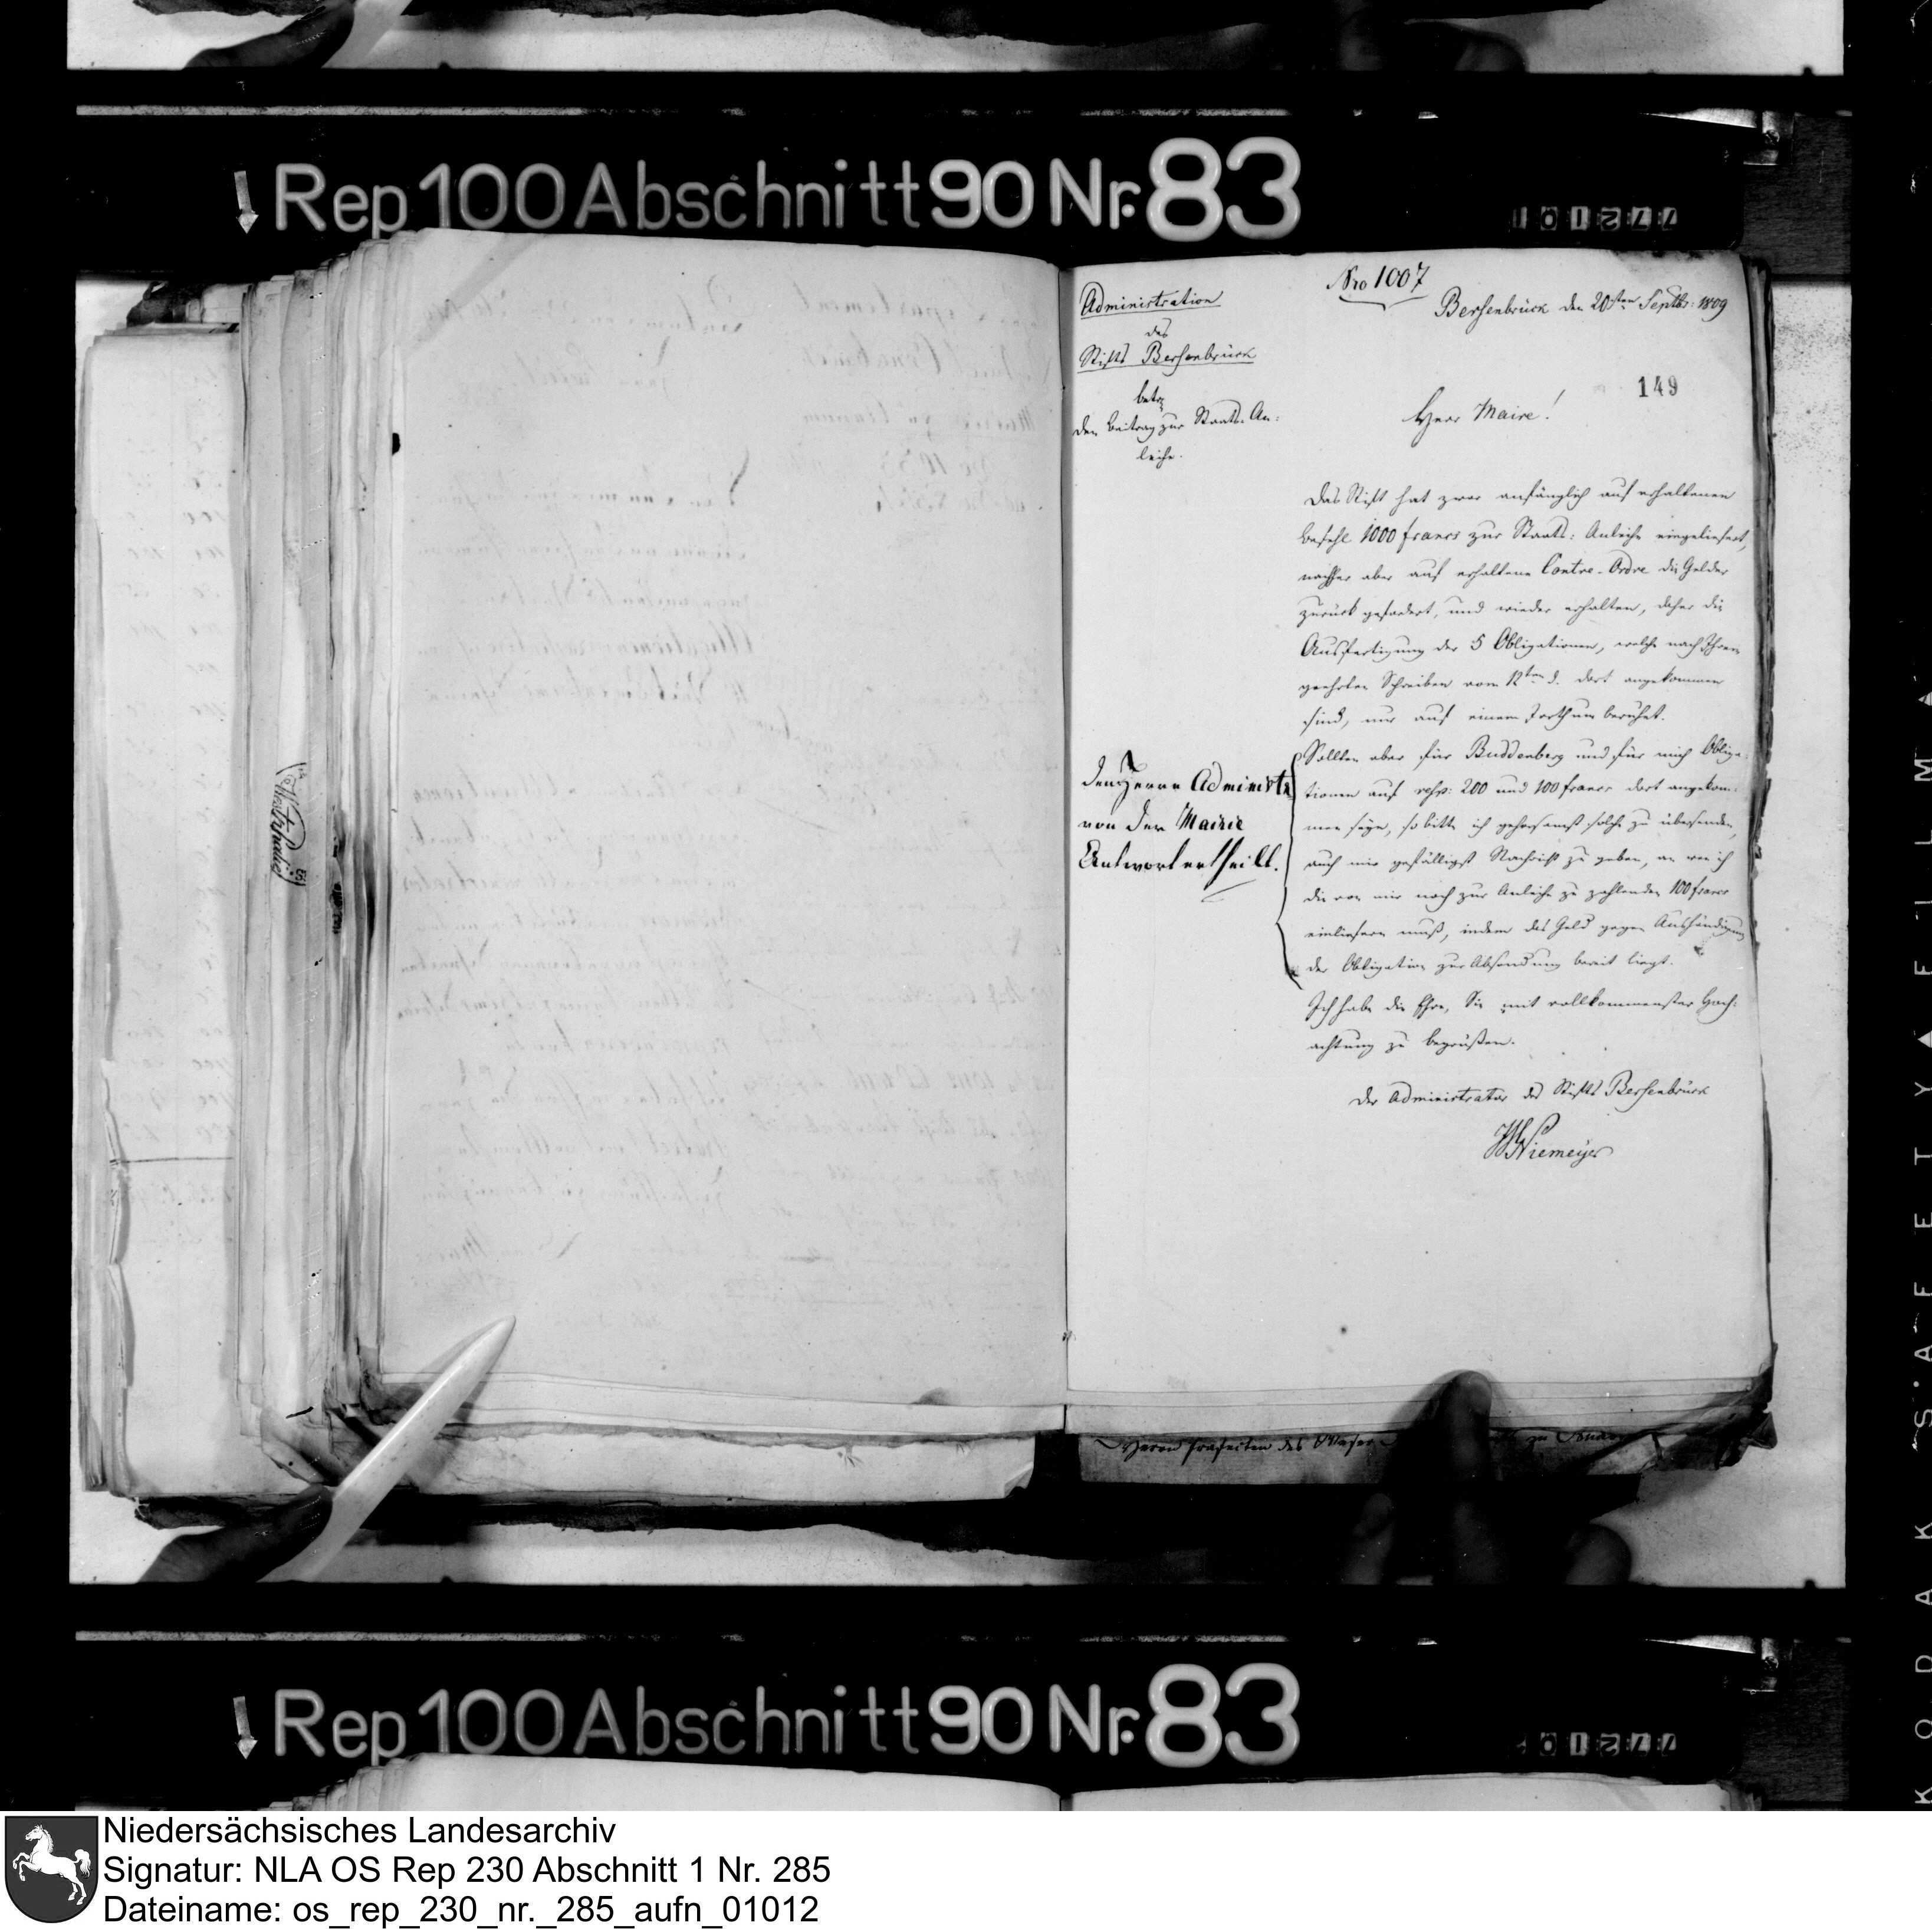 Rep 100 Abschnitt 90 Nr. 83
Nro 1007
Bersenbrück den 20sten Septbr: 1809
149
Administration
des
Stifts Bersenbrück
betr
den Beitrag zur Staats-An-
leihe.
Herr Maire!
Das Stift hat zwar anfänglich auf erhaltenen
Befehl 1000 francs zur Staats-Anleihe eingeliefert,
nachher aber auf erhaltene Contre-Ordre die Gelder
zurück gefordert, und wieder erhalten, daher die
Ausfertigung der 5 Obligationen, welche nach Ihrem
geehrten Schreiben vom 12ten d. dort angekommen
sind, nur auf einem Irrthum beruhet.
Sollten aber für Buddenberg und für mich Obliga-
tionen auf resp: 200 und 100 francs dort angekom-
men seyn, so bitte ich gehorsamst solche zu übersenden,
auch mir gefälligst Nachricht zu geben, an wen ich
die von mir noch zur Anleihe zu zahlenden 100 francs
einliefern muß, indem das Geld gegen Aushändigung
der Obligation zur Absendung bereit liegt.
Ich habe die Ehre, Sie mit vollkommenster Hoch-
achtung zu begrüßen.
Der Administrator des Stifts Bersenbrück
Niemeyer
dem Herrn Administr
von der Mairie
Antwort ertheilt.
Herrn Praefecten des Weser
Rep 100 Abschnitt 90 Nr. 83
KODAK SAFETY FILM
Niedersächsisches Landesarchiv
Signatur: NLA OS Rep 230 Abschnitt 1 Nr. 285
Dateiname: os_rep_230_nr._285_aufn_01012